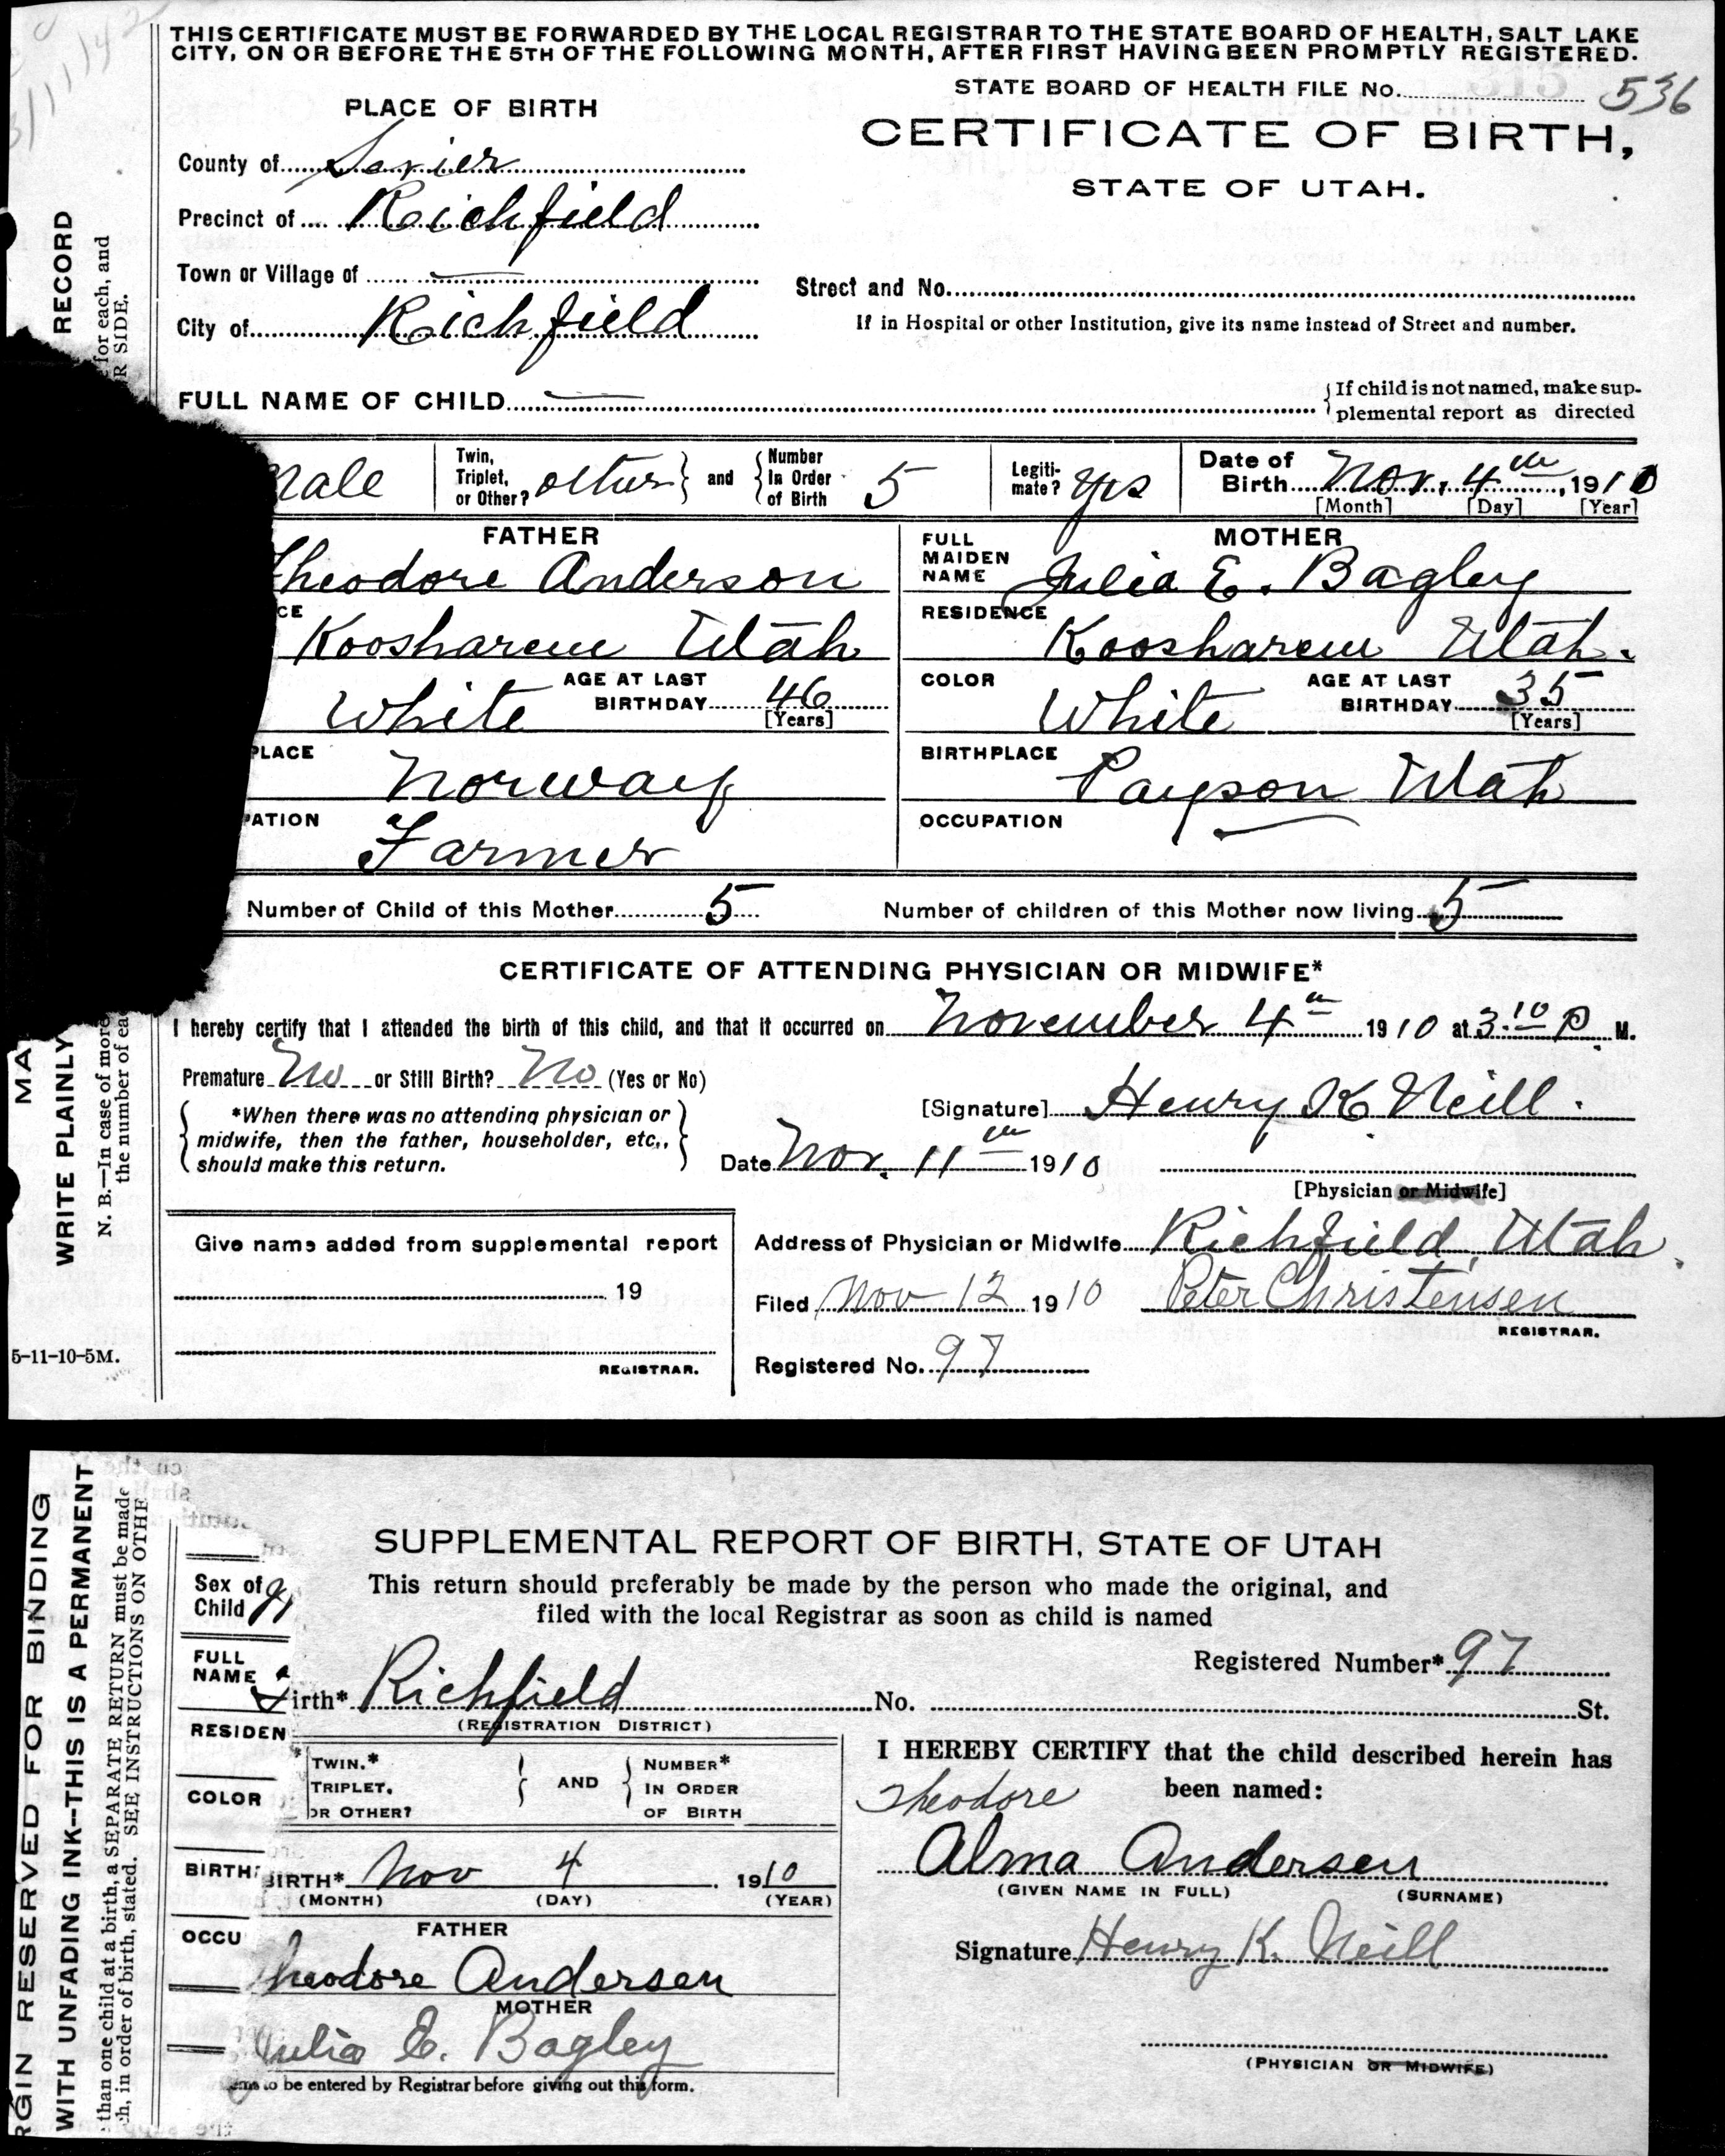 THIS CERTIFICATE MUST BE FORWARDED BY THE LOCAL REGISTRAR TO THE STATE BOARD OF HEALTH, SALT LAKE
CITY, ON OR BEFORE THE 5TH OF THE FOLLOWING MONTH, AFTER FIRST HAVING BEEN PROMPTLY REGISTERED.
STATE BOARD OF HEALTH FILE No. 536
CERTIFICATE OF BIRTH,
STATE OF UTAH.
PLACE OF BIRTH
County of Sevier
Precinct of Richfield
Town or Village of —
City of Richfield
Street and No.
If in Hospital or other Institution, give its name instead of Street and number.
FULL NAME OF CHILD —
{If child is not named, make sup-
plemental report as directed
Male
Twin, Triplet, or Other? other } and { Number In Order of Birth 5
Legiti-mate? yes
Date of Birth Nov. 4th, 1910
[Month] [Day] [Year]
FATHER
Theodore Anderson
CE
Koosharem Utah
White AGE AT LAST BIRTHDAY 46
[Years]
PLACE
Norway
PATION
Farmer
MOTHER
FULL MAIDEN NAME Julia E. Bagley
RESIDENCE
Koosharem Utah.
COLOR
White AGE AT LAST BIRTHDAY 35
[Years]
BIRTHPLACE
Payson Utah
OCCUPATION —
Number of Child of this Mother 5 Number of children of this Mother now living 5
CERTIFICATE OF ATTENDING PHYSICIAN OR MIDWIFE*
I hereby certify that I attended the birth of this child, and that it occurred on November 4th 1910 at 3.10 P. M.
Premature No or Still Birth? No (Yes or No)
{ *When there was no attending physician or
midwife, then the father, householder, etc.,
should make this return. }
[Signature] Henry K Neill.
Date Nov. 11th 1910
[Physician or Midwife]
Give name added from supplemental report
19
REGISTRAR.
Address of Physician or Midwife Richfield, Utah.
Filed Nov 12 1910 Peter Christensen
REGISTRAR.
Registered No. 97
RECORD
for each, and
R SIDE.
MA
WRITE PLAINLY
N. B.—In case of more
the number of eac
5-11-10-5M.
SUPPLEMENTAL REPORT OF BIRTH, STATE OF UTAH
This return should preferably be made by the person who made the original, and
filed with the local Registrar as soon as child is named
Sex of Child
Registered Number* 97
FULL NAME
irth* Richfield No. St.
(REGISTRATION DISTRICT)
RESIDEN
TWIN.* TRIPLET. OR OTHER? } AND { NUMBER* IN ORDER OF BIRTH
COLOR
BIRTH
BIRTH* Nov 4 1910
(MONTH) (DAY) (YEAR)
OCCU
FATHER
Theodore Andersen
MOTHER
Julia E. Bagley
ems to be entered by Registrar before giving out this form.
I HEREBY CERTIFY that the child described herein has
been named:
Theodore
Alma Andersen
(GIVEN NAME IN FULL) (SURNAME)
Signature Henry K. Neill
(PHYSICIAN OR MIDWIFE)
RGIN RESERVED FOR BINDING
WITH UNFADING INK--THIS IS A PERMANENT
than one child at a birth, a SEPARATE RETURN must be made
h, in order of birth, stated. SEE INSTRUCTIONS ON OTHE